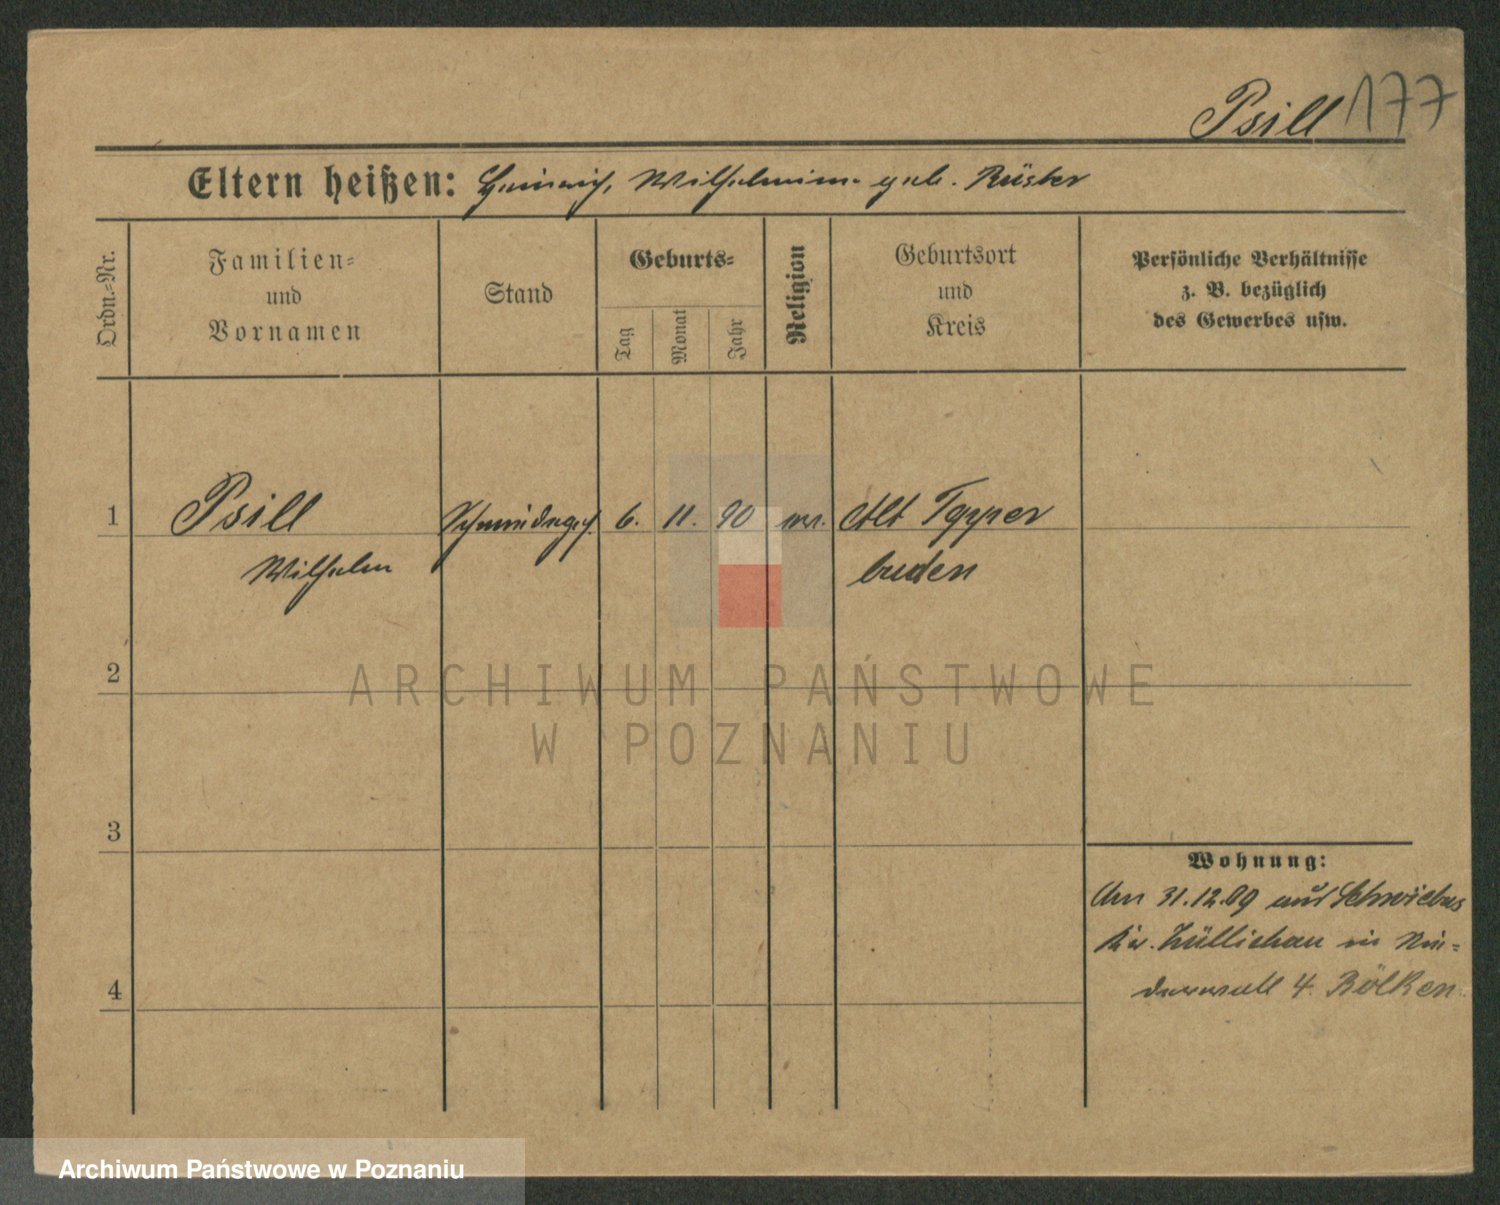 Psill 177
Eltern heißen: Heinrich, Wilhelmine geb. Rüster
Ordn.-Nr.
Familien-
und
Vornamen
Stand
Geburts-
Tag
Monat
Jahr
Religion
Geburtsort
und
Kreis
Persönliche Verhältnisse
z. B. bezüglich
des Gewerbes usw.
1 Psill Schmiedeges. 6. 11. 90 ev. Alt Tepper
Wilhelm buden
2
3
4
Wohnung:
Am 31.12.09 aus Schwiebus
Kr. Züllichau in
4. Bölken
ARCHIWUM PAŃSTWOWE
W POZNANIU
Archiwum Państwowe w Poznaniu